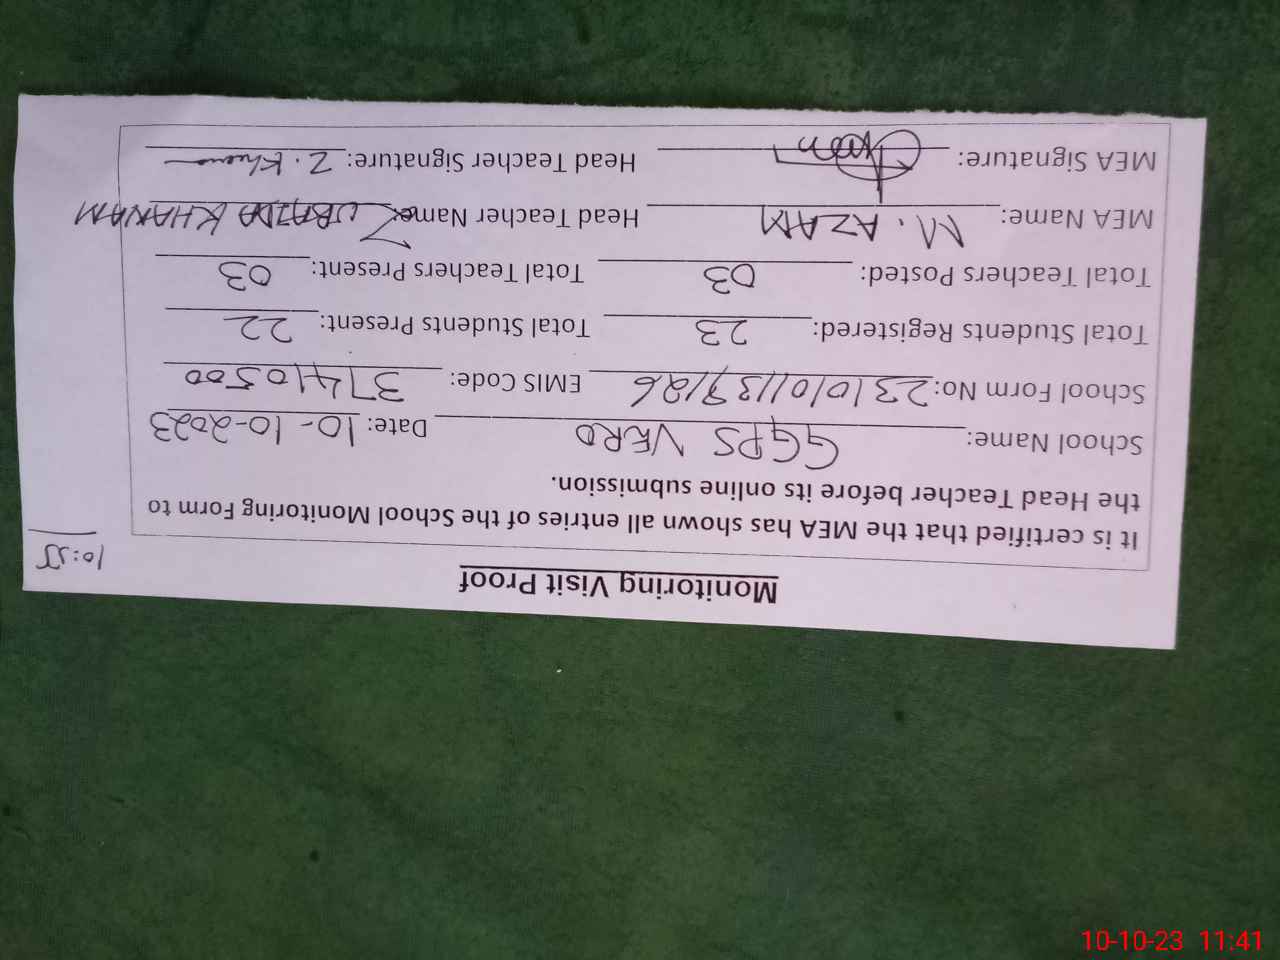 Monitoring Visit Proof
10:55
It is certified that the MEA has shown all entries of the School Monitoring Form to
the Head Teacher before its online submission.
School Name: GGPS VERO Date: 10-10-2023
School Form No: EMIS Code: 37410500
Total Students Registered: 23 Total Students Present: 22
Total Teachers Posted: 03 Total Teachers Present: 03
MEA Name: M. AZAM Head Teacher Name: ZUBAIDA KHANAM
MEA Signature: Head Teacher Signature: Z. Khanam
10-10-23 11:41